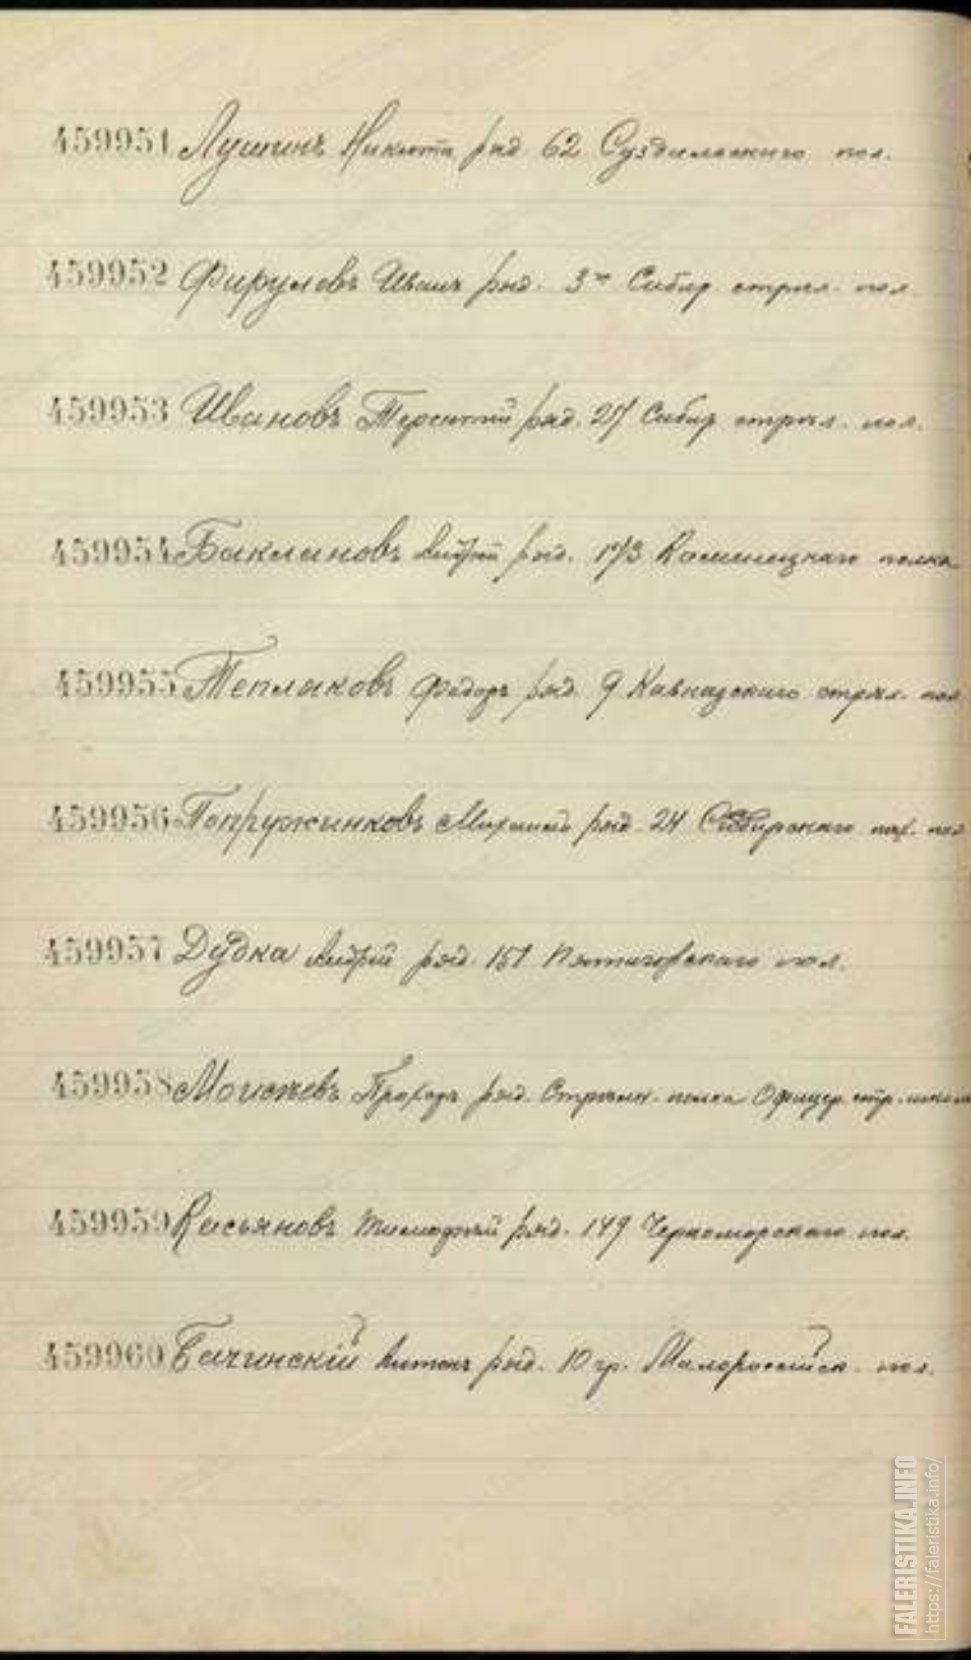 459951 Лушинъ Никита ряд. 62 Суздальскаго пол.
459952 Фируловъ Иванъ ряд. 3го Сибир. стрѣл. пол.
459953 Ивановъ Терентій ряд. 21 Сибир. стрѣл. пол.
459954 Баклановъ Андрей ряд. 173 Каменецкаго полка
459955 Тепляковъ Федоръ ряд. 9 Кавказскаго стрѣл. пол.
459956 Попружинковъ Михаилъ ряд. 24 Сибирскаго пол.
459957 Дудка Андрей ряд. 151 Пятигорскаго пол.
459958 Моисѣевъ Прохоръ ряд. Стрѣлк. полка Офицер. стр. школы
459959 Касьяновъ Тимофей ряд. 149 Черноморскаго пол.
459960 Бачинскій Антонъ ряд. 10 гр. Малороссійск. пол.
FALERISTIKA.INFO
https://faleristika.info/